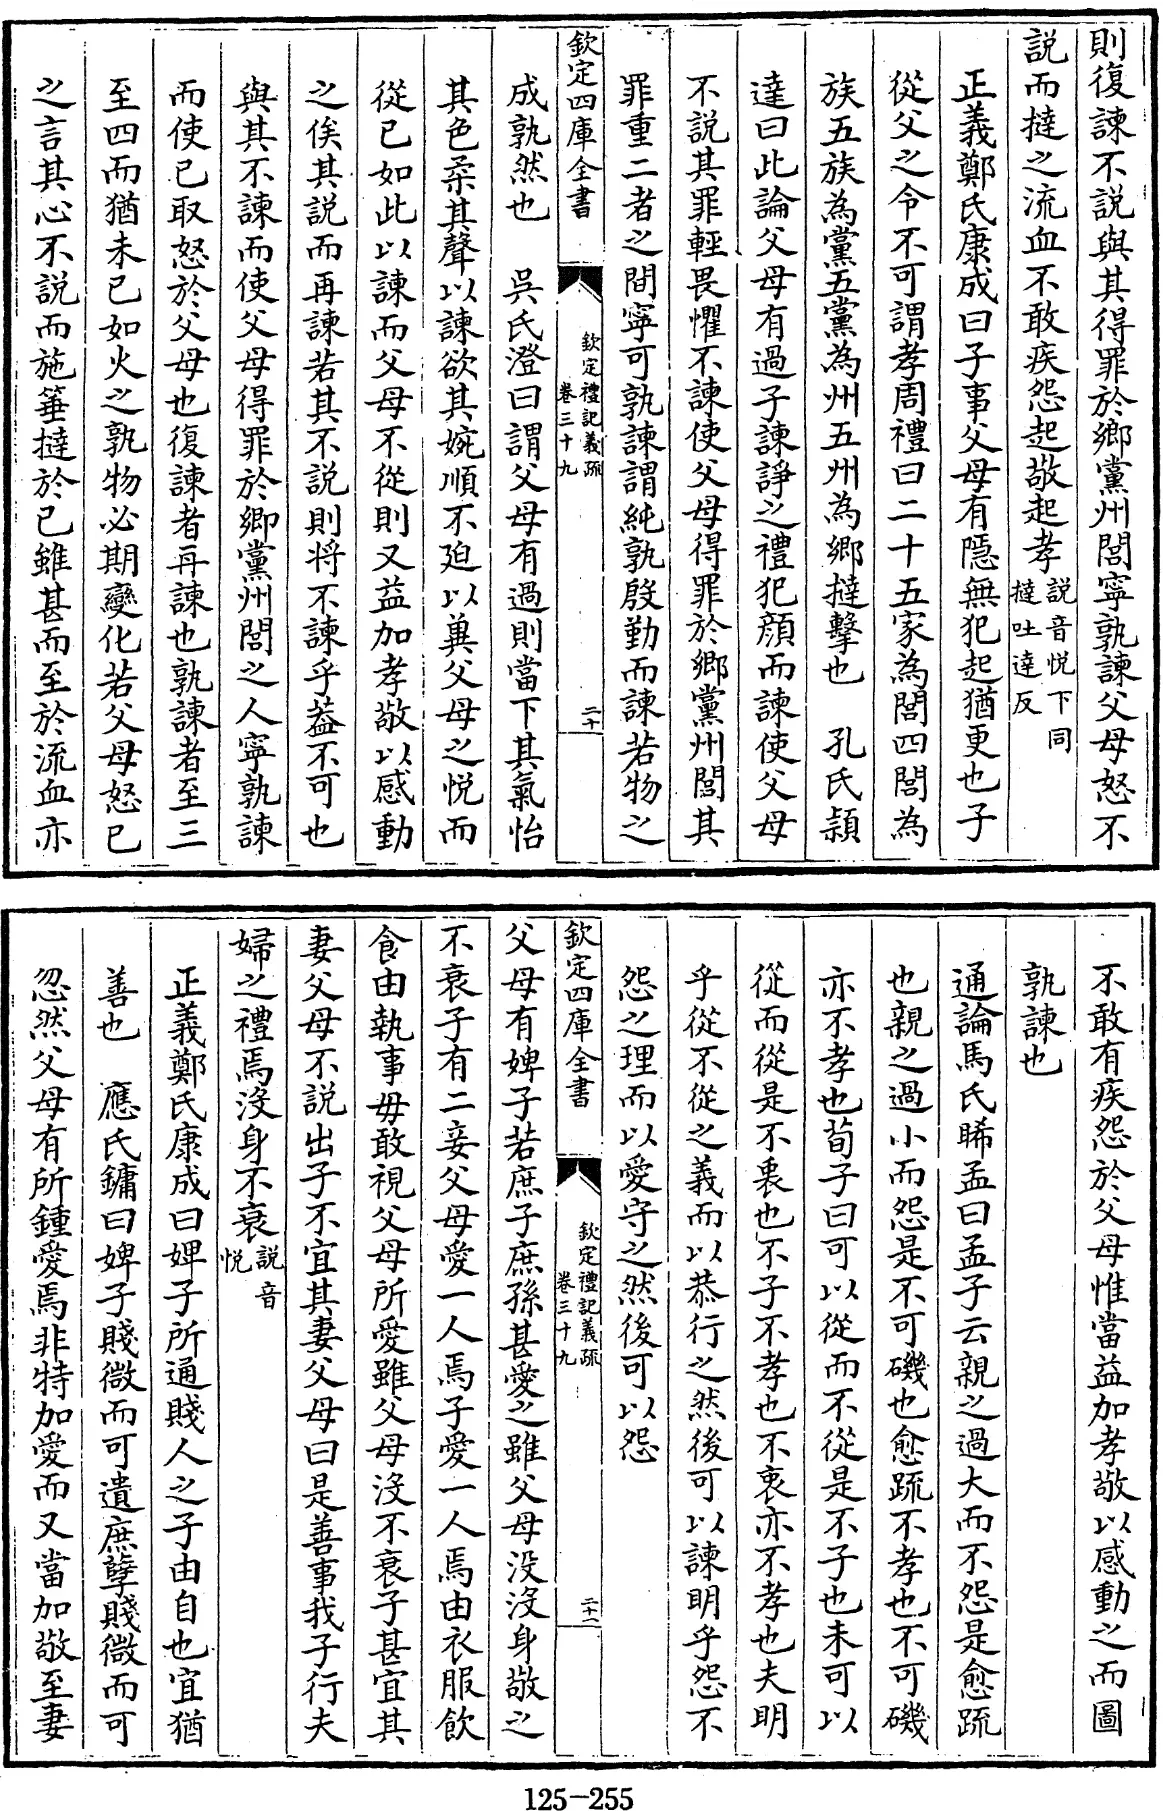 則復諫不説與其得罪於鄉黨州閭寧孰諫父母怒不
説而撻之流血不敢疾怨起敬起孝説音悦下同撻吐達反
正義鄭氏康成曰子事父母有隠無犯起猶更也子
從父之令不可謂孝周禮曰二十五家為閭四閭為
族五族為黨五黨為州五州為鄉撻擊也　孔氏頴
達曰此論父母有過子諫諍之禮犯顔而諫使父母
不説其罪輕畏懼不諫使父母得罪於鄉黨州閭其
罪重二者之間寧可孰諫謂純孰殷勤而諫若物之
欽定四庫全書
欽定禮記義疏
卷三十九
二十
成孰然也　吳氏澄曰謂父母有過則當下其氣怡
其色柔其聲以諫欲其婉順不廹以兾父母之悦而
從已如此以諫而父母不從則又益加孝敬以感動
之俟其説而再諫若其不説則将不諫乎葢不可也
與其不諫而使父母得罪於鄉黨州閭之人寧孰諫
而使已取怒於父母也復諫者再諫也孰諫者至三
至四而猶未已如火之孰物必期變化若父母怒已
之言其心不説而施箠撻於已雖甚而至於流血亦
不敢有疾怨於父母惟當益加孝敬以感動之而圖
孰諫也
通論馬氏晞孟曰孟子云親之過大而不怨是愈疏
也親之過小而怨是不可磯也愈疏不孝也不可磯
亦不孝也荀子曰可以從而不從是不子也未可以
從而從是不衷也不子不孝也不衷亦不孝也夫明
乎從不從之義而以恭行之然後可以諫明乎怨不
怨之理而以愛守之然後可以怨
欽定四庫全書
欽定禮記義疏
卷三十九
二十一
父母有婢子若庶子庶孫甚愛之雖父母没沒身敬之
不衰子有二妾父母愛一人焉子愛一人焉由衣服飲
食由執事毋敢視父母所愛雖父母沒不衰子甚宜其
妻父母不説出子不宜其妻父母曰是善事我子行夫
婦之禮焉沒身不衰説音悦
正義鄭氏康成曰婢子所通賤人之子由自也宜猶
善也　應氏鏞曰婢子賤微而可遺庶孽賤微而可
忽然父母有所鍾愛焉非特加愛而又當加敬至妻
125-255